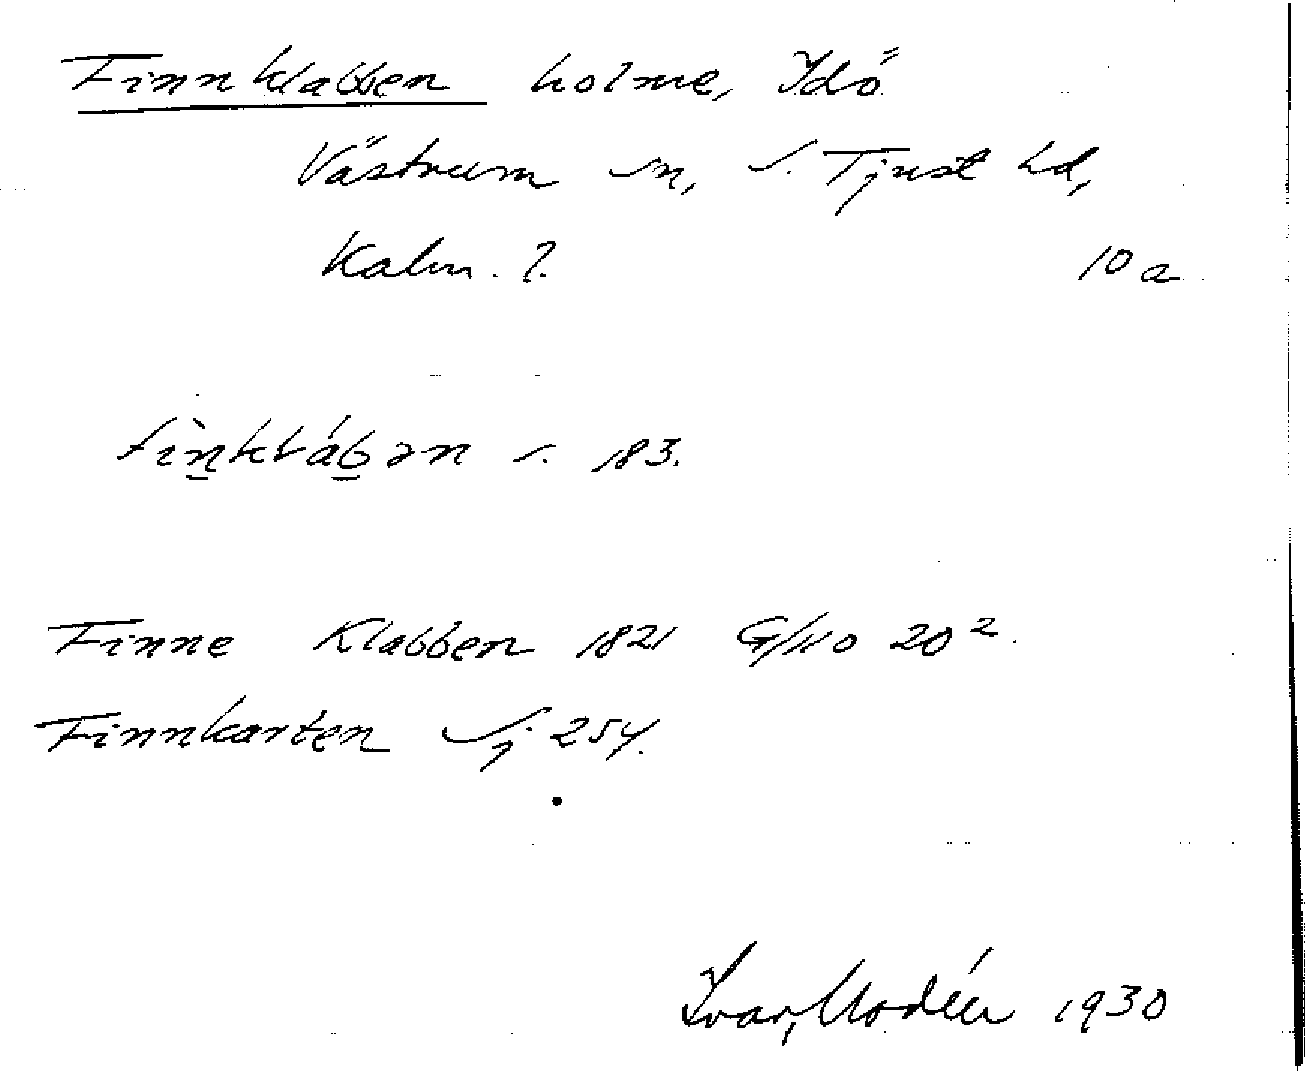 Finnklabben holme, Idö
Västrum sn, S. Tjust hd,
Kalm. l. 10 a
fìnklábən s. 183.
Finne Klabben 1821 G/110 20²
Finnkarten Sj 254.
Ivar Modéer 1930